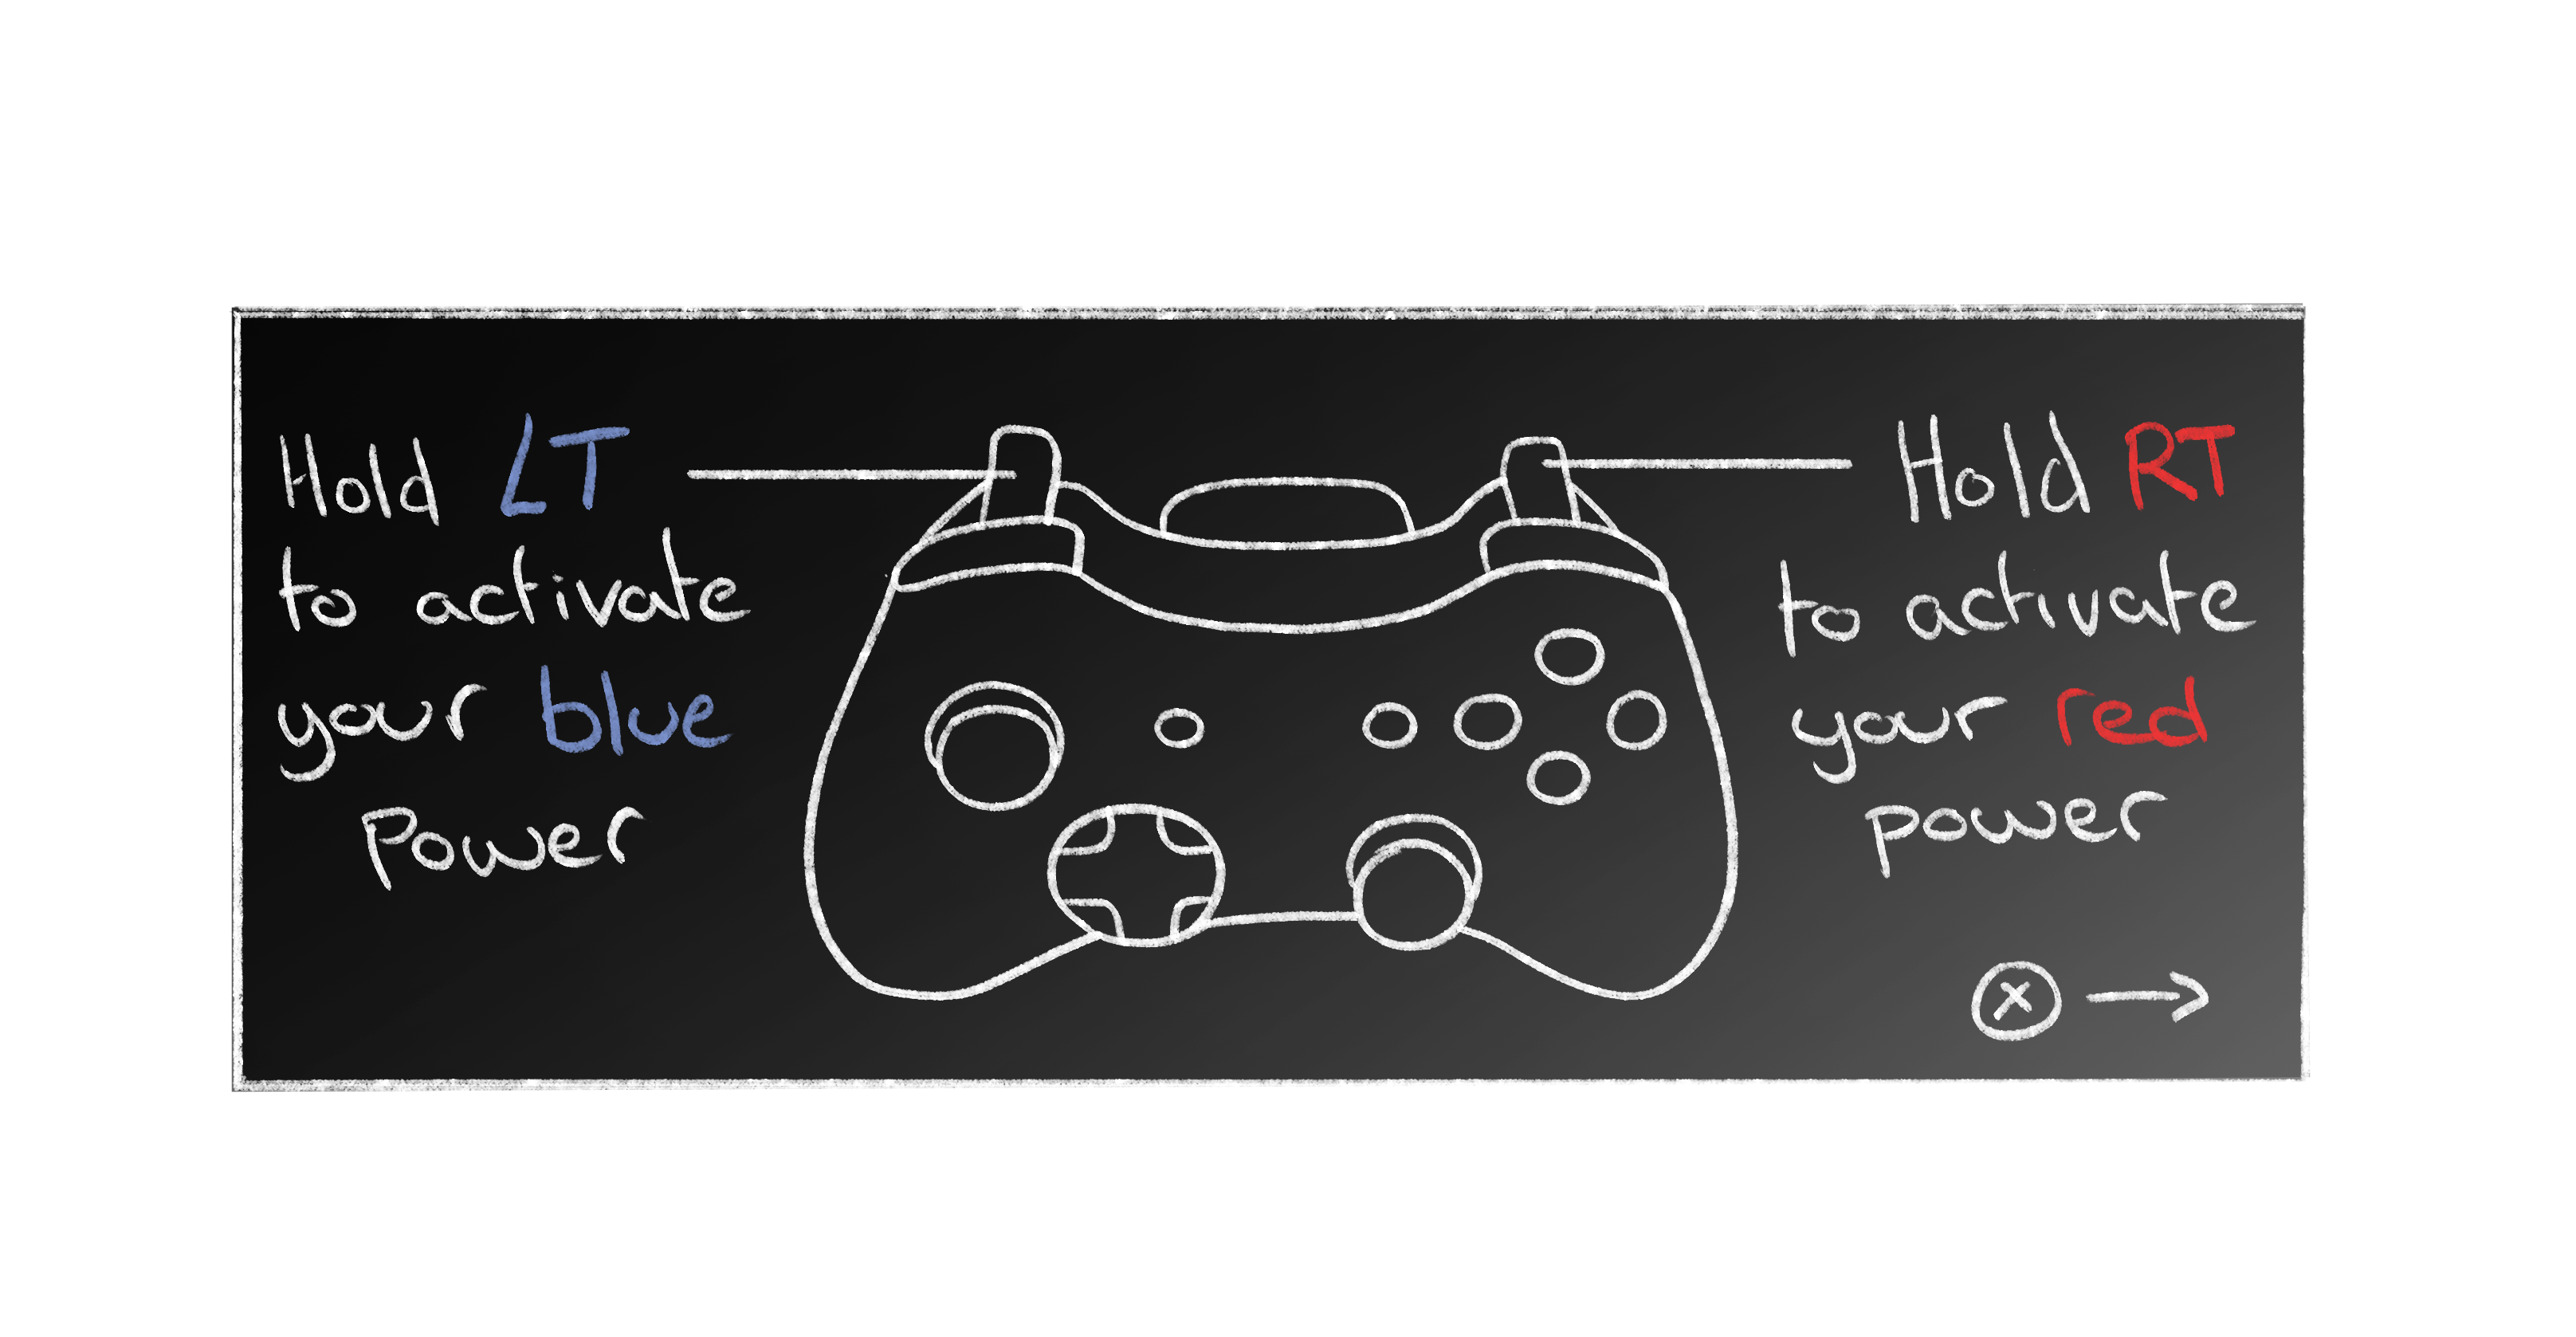 Hold LT
to activate
your blue
Power
Hold RT
to activate
your red
power
X →